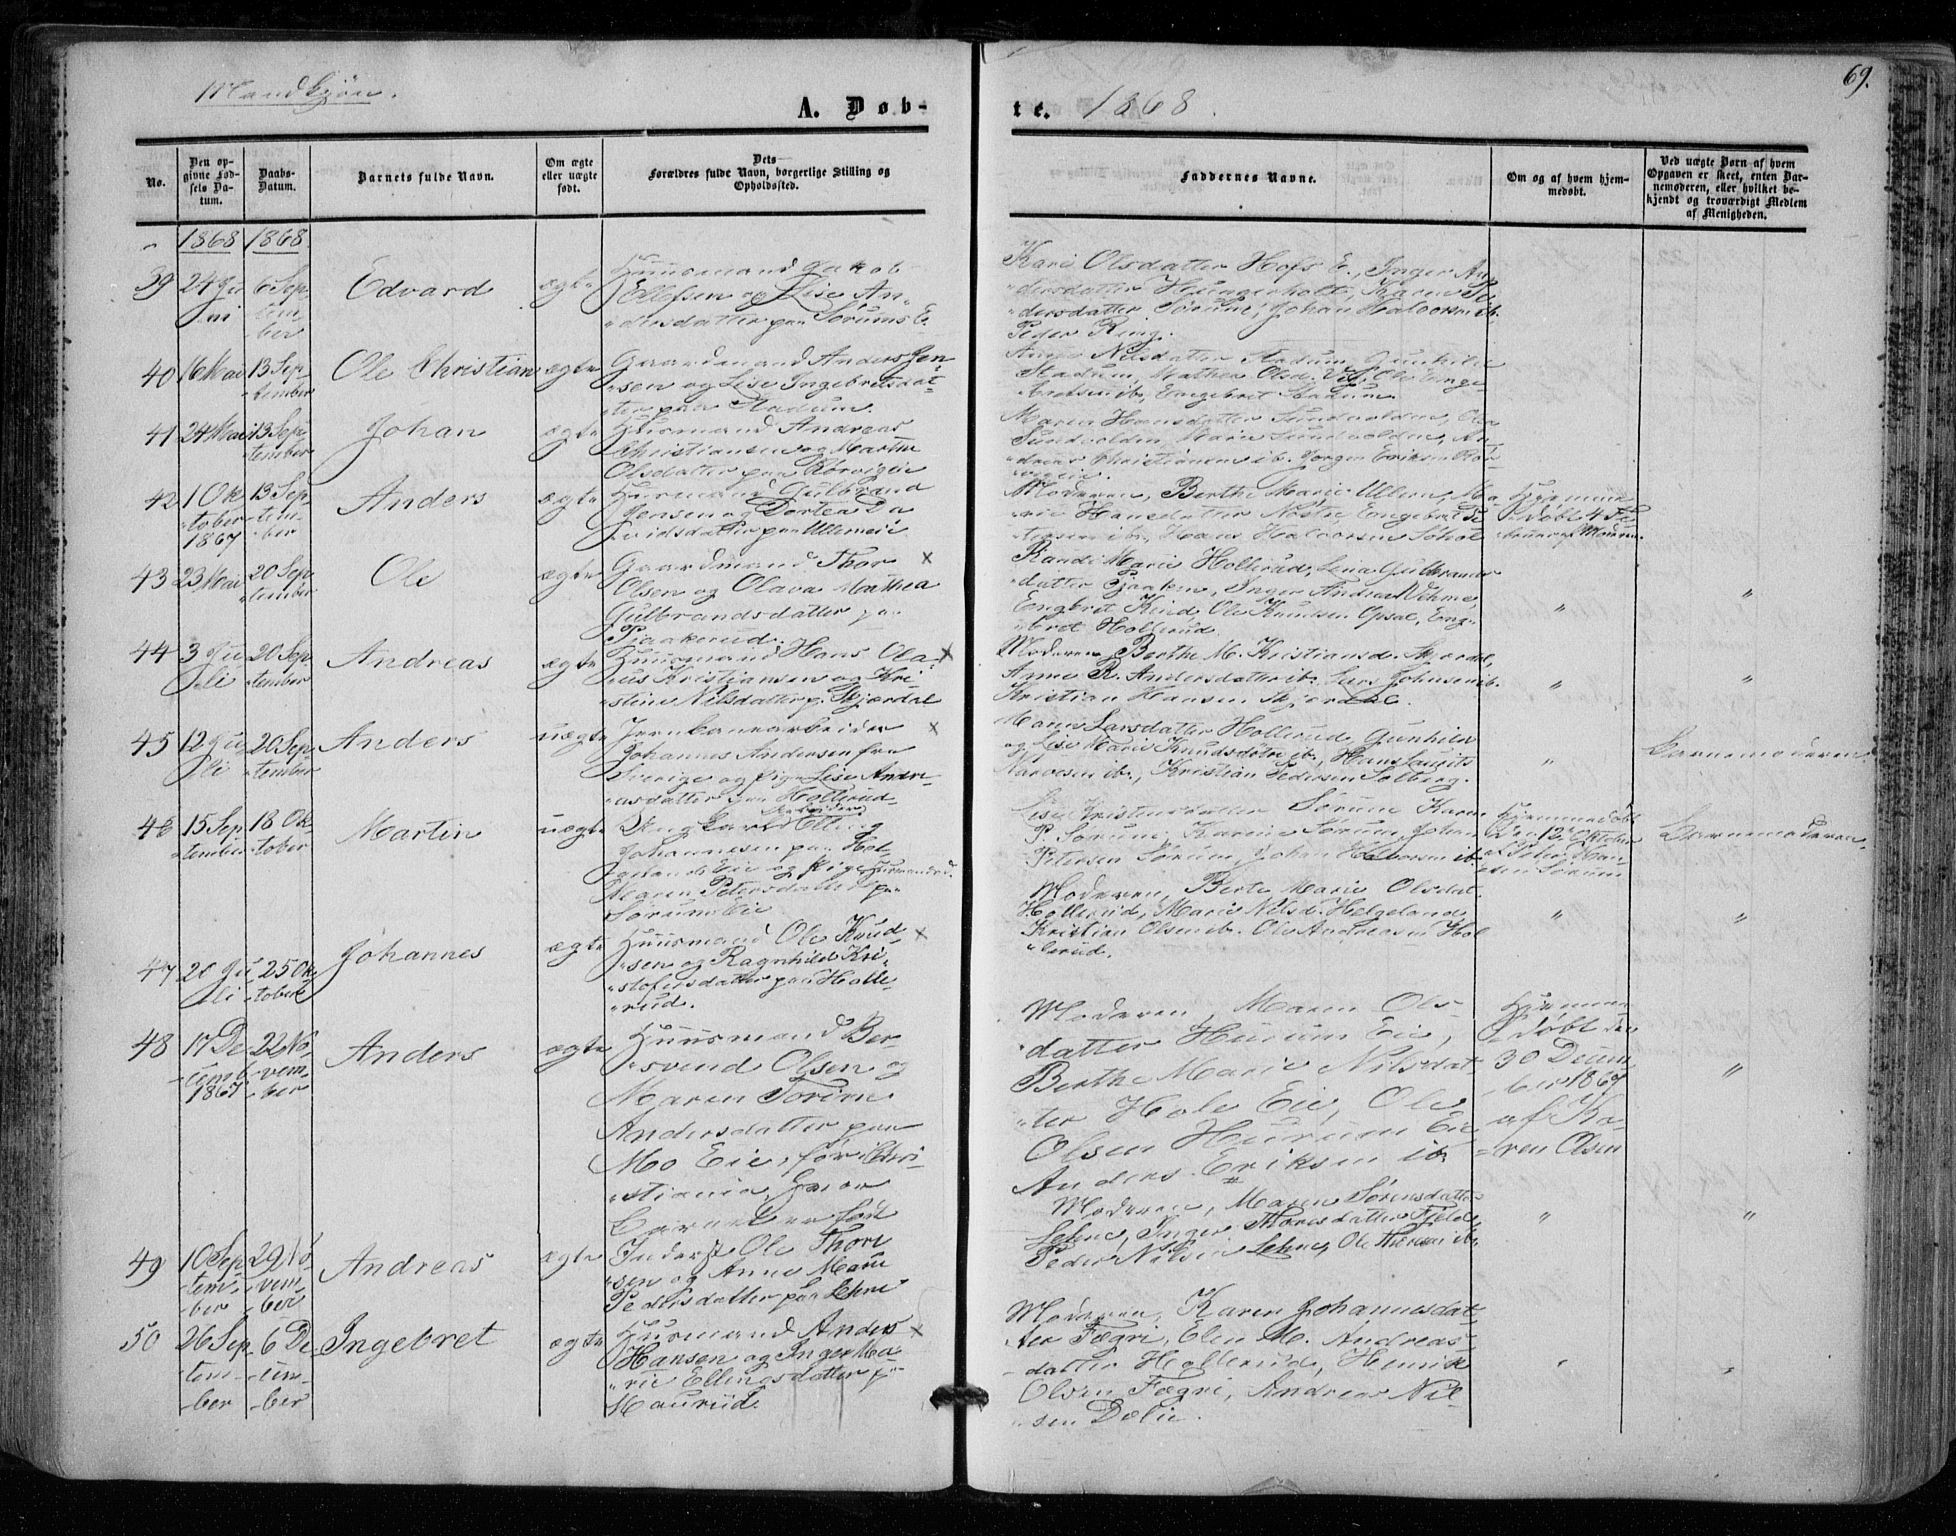 Mandkjøn.
A. Døb-
te. 1868.
69.
No.
Den op-
givne Fød-
sels Da-
tum.
Daabs-
Datum.
Barnets fulde Navn.
Om ægte
eller uægte
født.
Dets
Forældres fulde Navn, borgerlige Stilling og
Opholdssted.
Faddernes Navne.
Om og af hvem hjem-
medøbt.
Ved uægte Børn af hvem
Opgaven er skeet, enten Bar-
nemoderen, eller hvilket be-
kjendt og troværdigt Medlem
af Menigheden.
1868 1868.
39 24 Ju-
ni
6 Sep-
tem-
ber
Edvard
ægte
Huusmand Jakob
Ellefsen og Lise An-
dersdatter paa Sørums E.
Kari Olsdatter Hofs E., Inger An-
dersdatter Hungerholt, Karen Pe-
dersdatter Sørum, Johan Halvorsen ib.
Peder Ring.
40 16 Mai
13 Sep-
tember
Ole Christian
ægte
Gaardmand Anders Jen-
sen og Lise Ingebretsdat-
ter paa Stadum.
Anne Nilsdatter Stadum, Gunhild
Stadum, Mathea Olsd. Ve, Ole Enge-
bretsen ib., Engebret Stadum.
41 24 Mai
13 Sep-
tember
Johan
ægte
Huusmand Andreas
Christiansen og Marthe
Olsdatter paa Rørvigen
Maren Hansdatter Sundvolden, Ola
Sundvolden, Marie Sundvolden, An-
dreas Christiansen ib. Jørgen Eriksen Rør-
vigen.
42 1 Ok-
tober
1867
13 Sep-
tem-
ber
Anders
ægte
Huusmand Gulbrand
Jensen og Dortea Da-
vidsdatter paa Ullerneie
Moderen, Berthe Marie Ullern, Ma-
rie Hansdatter Nestre, Engebret Pe-
tersen ib., Hans Halvorsen Sohol
Hjemme-
døbt 4 Fe-
bruar af Moderen.
43 23 Mai
20 Sep-
tember
Ole
ægte
Gaardmand Thor
Olsen og Olava Mathea
Gulbrandsdatter paa
Pjaakerud.
Randi Marie Hollerud, Lena Gulbrands-
datter Pjaaken, Inger Andrea Vehme,
Engebret Kind, Ole Knudsen Opsal, Eng-
bret Hollerud
44 3 Ju-
li
20 Sep-
tember
Andreas
ægte
Huusmand Hans Ola-
us Kristiansen og Kri-
stine Nilsdatter p. Skjærdal
Moderen, Berthe M. Kristiansd. Skjærdal,
Anne R. Andersdatter ib., Lars Johnsen ib.
Kristian Hansen Skjærdal.
45 12 Ju-
li
20 Sep-
tember
Anders
uægte
Jernbanearbeider
Johannes Andersen fra
Sverige og Pige Lise Andre-
asdatter paa Hollerud
Maren Larsdatter Hollerud, Gunhild
og Lise Marie Knudsdøtre ib., Hans Laurits
Narvesen ib., Kristian Pedersen Solberg.
Barnemoderen
46 15 Sep-
tember
18 Ok-
tober
Martin
uægte
Ungkarl Arbeider Elling
Johannesen paa Hel-
gelands Eie og Pige Huusmandsd.
Maren Petersdatter paa
Sørums Eie
Lise Kristensdatter Sørum, Karen
P. Sørum, Karen Sørum, Johan
Petersen Sørum, Johan Halvorsen ib.
Hjemmedøbt
den 12 Oktober
af Peter Han-
sen Sørum
Barnemoderen.
47 20 Ju-
li
25 Ok-
tober
Johannes
ægte
Huusmand Ole Knud-
sen og Ragnhild Kri-
stofersdatter paa Holle-
rud.
Moderen, Berte Marie Olsdat.
Hollerud, Marie Nilsd. Helgeland
Kristian Olsen ib. Ole Andreasen Hol-
lerud.
48 17 De-
cemb
1867
22 No-
vem-
ber
Anders
ægte
Huusmand Ber-
svend Olsen og
Maren Torine
Andersdatter paa
Mo Eie, før i Chri-
stiania, hvor
Barnet er født
Moderen, Maren Ols-
datter Hurum Eie,
Berthe Marie Nilsdat-
ter Hole Eie, Ole
Olsen Hurum Eie
Anders Eriksen ib
Hjemme-
døbt den
30 Decem-
ber 1867
af Ka-
ren Olsen
49 10 Sep-
tem-
ber
29 No-
vem-
ber
Andreas
ægte
Inderst Ole Thore-
sen og Anne Marie
Pedersdatter paa Lehne
Moderen, Maren Sørensdatter
Lehne, Inger Thoresdatter Fjeld,
Peder Nilsen Lehne, Ole Thoresen ib.
50 26 Sep-
tem-
ber
6 De-
cem-
ber
Ingebret
ægte
Huusmand Anders
Hansen og Inger Ma-
rie Ellingsdatter p.
Maurud.
Moderen, Karen Johannesdat-
ter Fægri, Elen M. Andreas-
datter Hollerud, Henrik
Olsen Fægri, Andreas Nil-
sen Dælie.